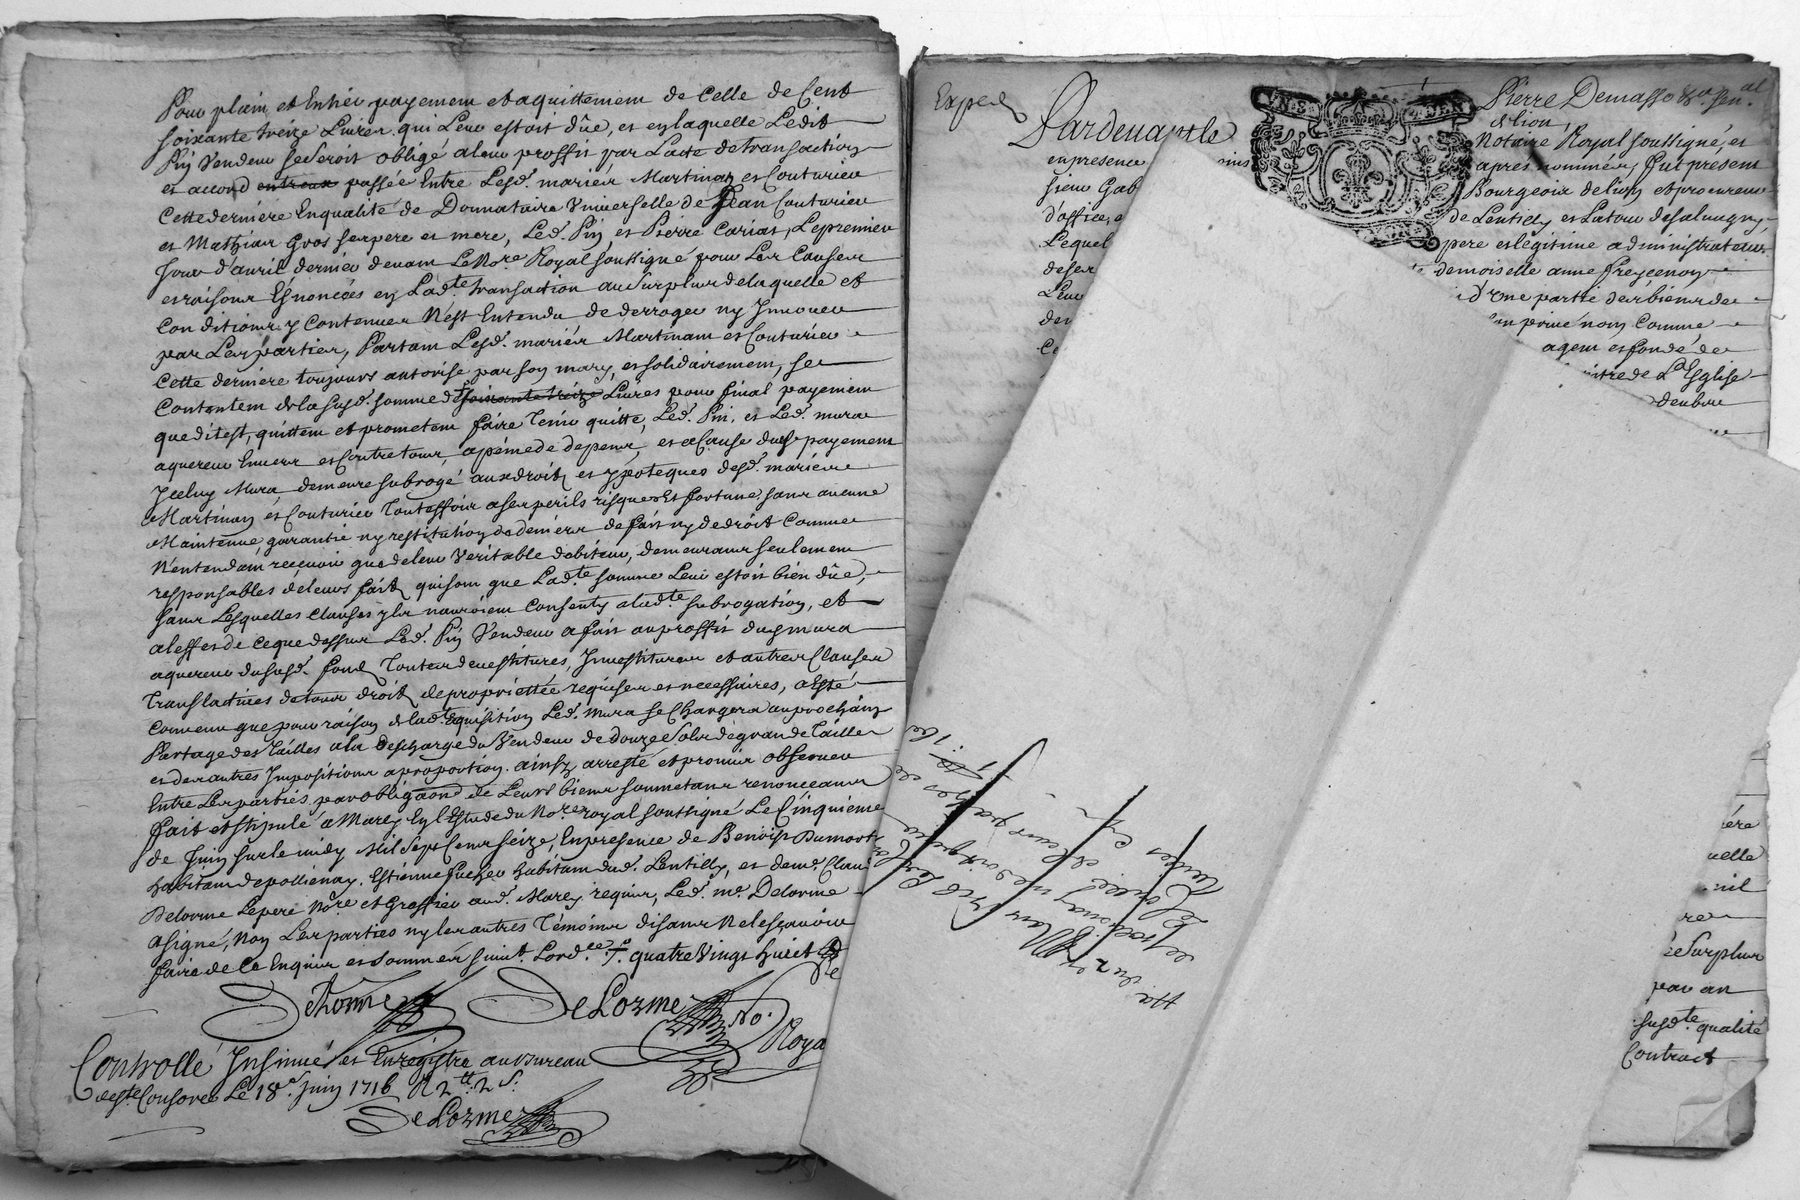 Pour plain et Entier payement et aquittement de Celle de Cent
soixante treize Livres qui Leur estoit dûe, et en laquelle Ledit
Pin Vendeur se seroit obligé a leur proffit par Lacte de transaction
et accord entreux passée Entre Lesd. mariés Martinan et Couturier
Cette derniere Enqualité de Donnataire Universelle de Jean Couturier
et Mathian Gros ses pere et mere, Led. Pin et Pierre Cariat, Lepremier
Jour d'avril dernier devant Le No.re Royal soussigné pour Les Causes
et raisons Esnoncées en Lad.te transaction au surplus de laquelle et
Conditions y Contenues N'est Entendu de derroger ny Innover
par Les parties, Partant Lesd. mariés Martinam et Couturier
Cette derniere toujours autorisé par son mary, et solidairement, se
Contentent de la susd. somme d soixante treize Livres pour final payement
que dit est, quittent et prometent faire Tenir quitte, Led. Pin, et Led. mura
aquereur Envers et Contre tous, a peine de depens, et a Cause dud. payement
Jceluy Mura, demeure subrogé aux droits et ypoteques desd. mariés
Martinan et Couturier Touteffois a ses perils risques et fortune, sans aucune
Maintenue, garantie ny restitution de deniers de fait ny de droit Comme
N'entendant reçevoir que de leur Veritable debiteur, demeurans seulement
responsables de leurs faits qui sont que Lad.te somme Leur estoit bien dûe,
sans Lesquelles clauses yls n'auroient Consenty a lad.te subrogation, et
a l'effet de ce que dessus Led. Pin Vendeur a fait au proffit dud. mura
aquereur du susd. fond Toutes devestitures, Jnvestitures et autres Clauses
Translatives de tous droits de propriettée requises et necessaires, a Esté
Convenu que pour raison de lad.te aquisition Led. mura se Chargera au prochain
Partage des Tailles a la Descharge du Vendeur de douze sols de grande Taille
et des autres Impositions a proportion. ainsy arresté et promis observer
Entre Les parties par obliga.ons de Leurs biens soumetans renonceans
fait et stipulé a Marcy En l'Estude du No.re royal soussigné Le Cinquieme
de Juin sur le midy Mil sept Cens seize, En presence de Benoist Dumort
habitant de pollienay. Estienne fucher habitant dud. Lentilly, et de me. Claude
Delorme Lepere No.re et Greffier aud. Marcy requis, Led. me. Delorme
a signé, Non Les parties ny les autres Témoins disans Ne le sçavoir
faire de Ce Enquis et sommés suiv.t Lord.ce quatre Vingt huict
Delorme DeLorme No. Roya
Controllé Insinué et Enregistré au bureau
Le 18.e juin 1716 R 2.tt 2 s.
DeLorme
Exped
Pardevant le
en presence
sieur Gab
d'office, e
Lequel
de ses
Leur
Pierre Demasso
de lion
Notaire Royal soussigné, et
apres nommés, fut present
Bourgeois de lion et procureur
de Lentilly et Latour de salvagny,
pere et legitime administrateur
demoiselle anne freycenon
d'Une partie des biens de
privé nom Comme
agent et fondé de
de L'Eglise
Surplus
par an
susd.te qualité
Contract